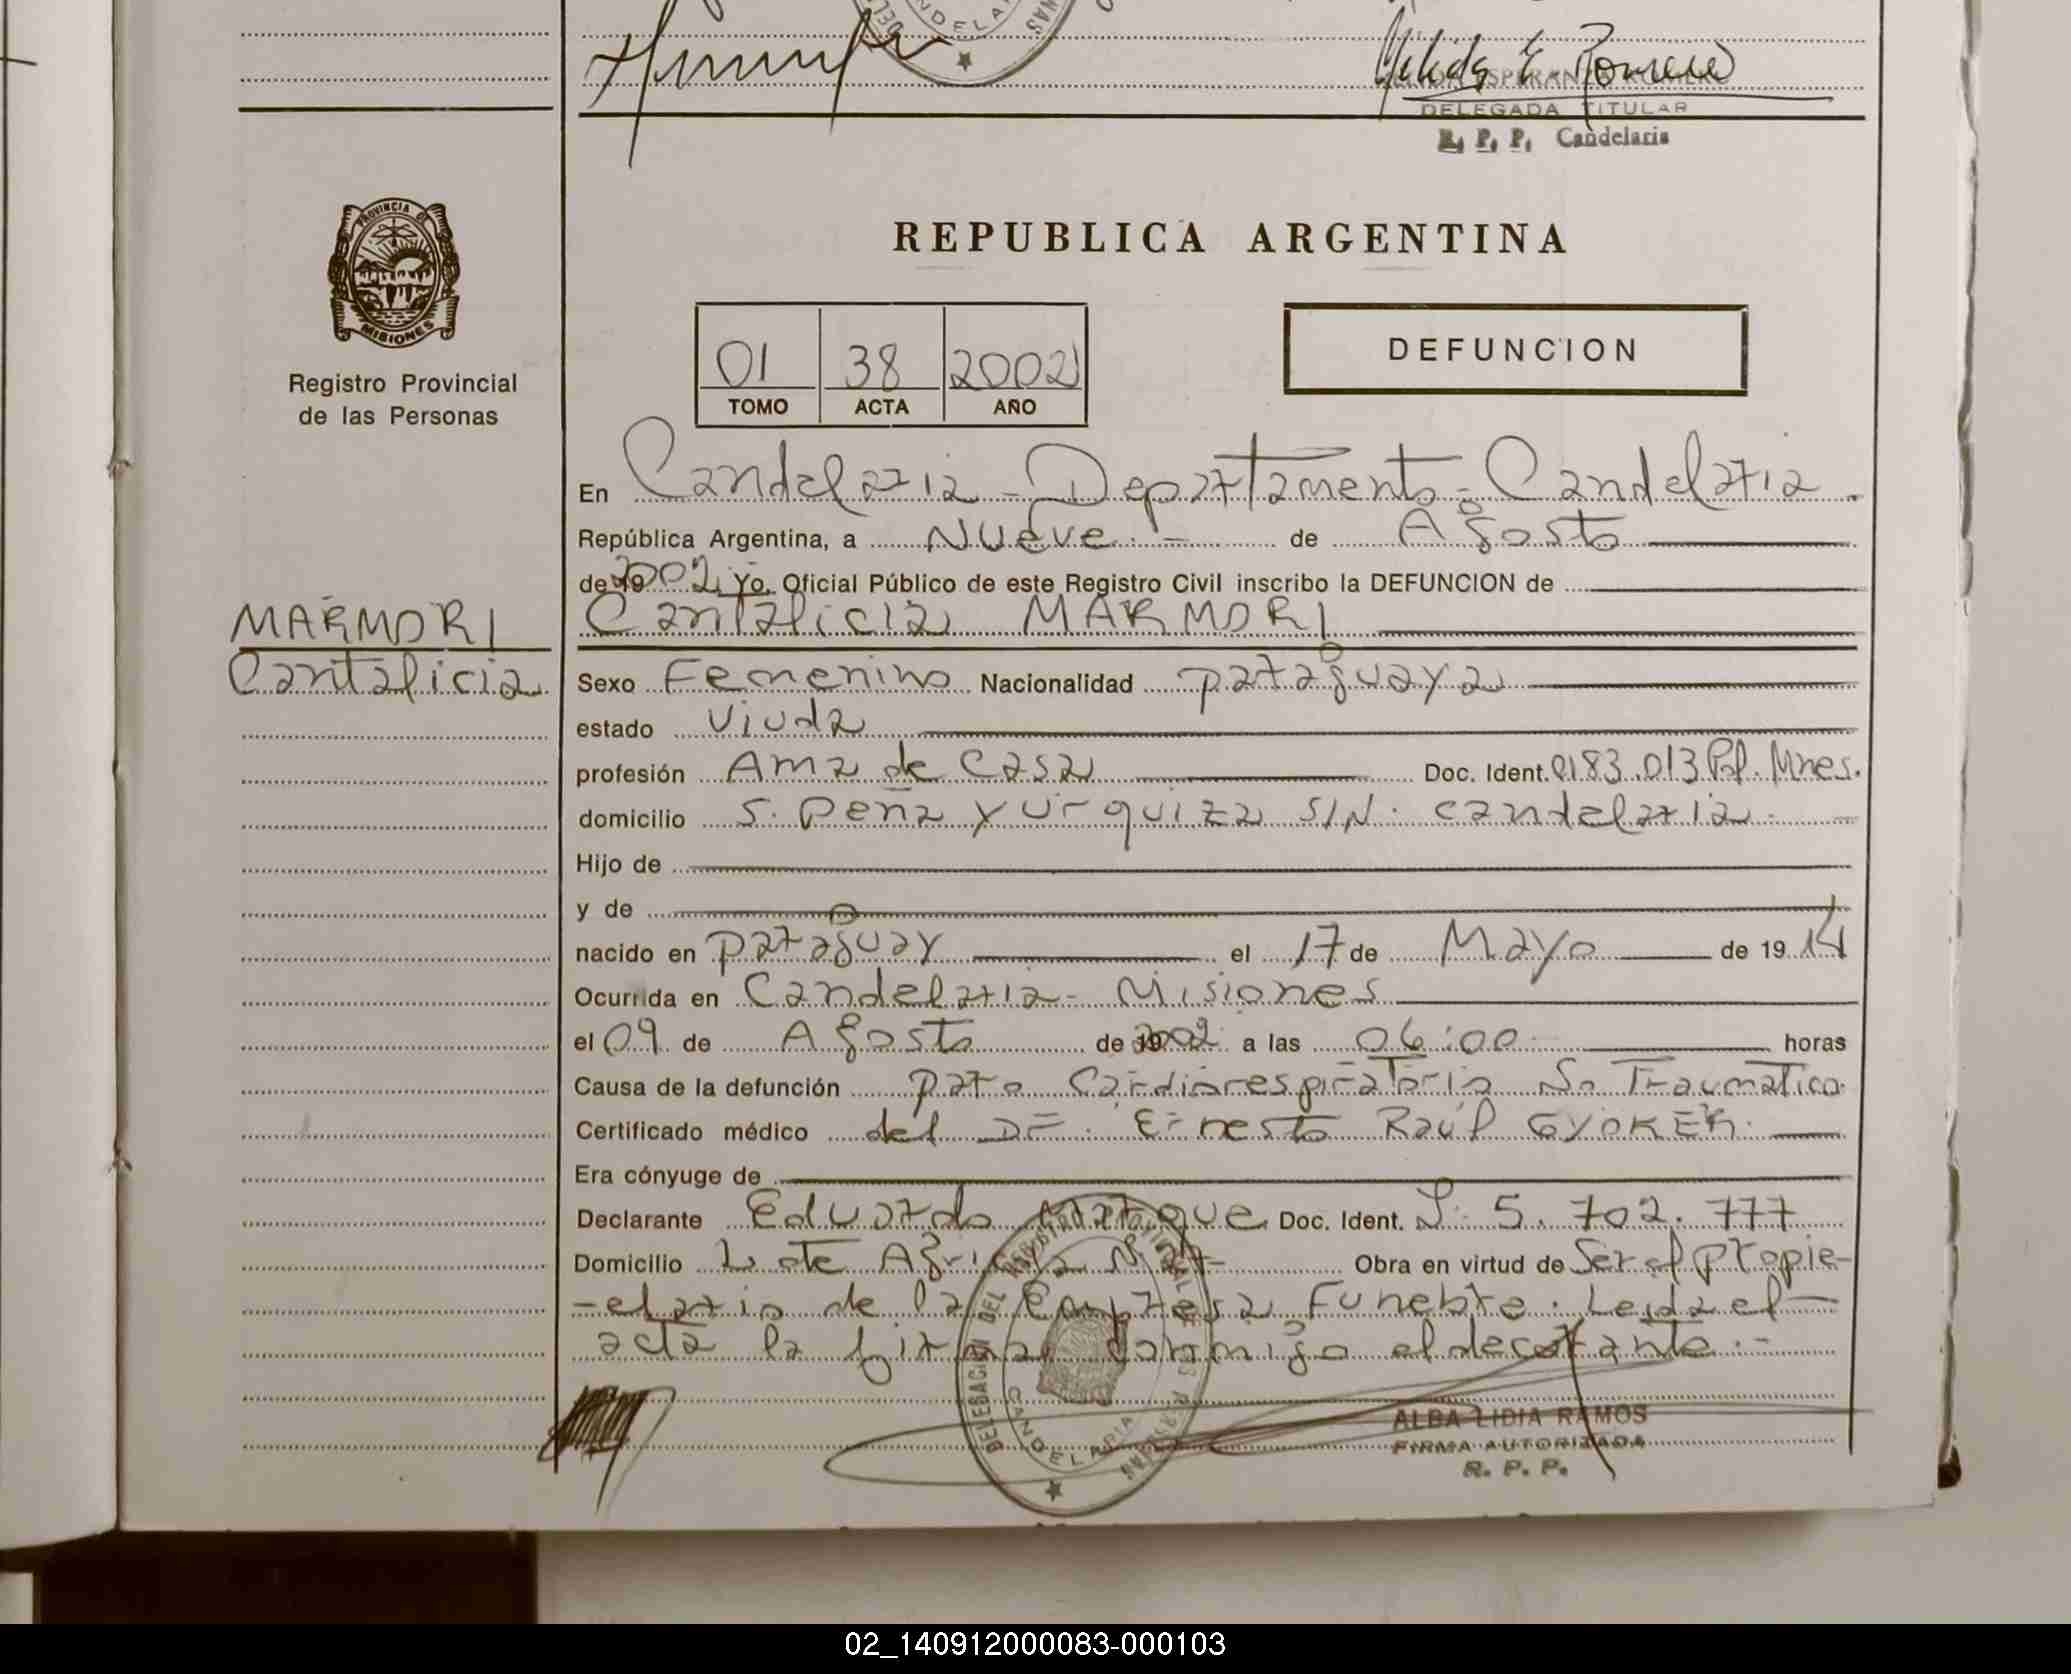 DELEGADA TITULAR
R. P. P. Candelaria
PROVINCIA DE
MISIONES
Registro Provincial
de las Personas
REPUBLICA ARGENTINA
01 38 2002
TOMO ACTA AÑO
DEFUNCION
En Candelaria - Departamento - Candelaria.
República Argentina, a Nueve - de Agosto
de 19 2002. Yo, Oficial Público de este Registro Civil inscribo la DEFUNCION de
Cantalicia MARMORI
MARMORI
Cantalicia
Sexo Femenino Nacionalidad paraguaya
estado Viuda
profesión Ama de casa Doc. Ident. 0183.013 Pol. Mnes.
domicilio S. Peña y Urquiza S/N. Candelaria
Hijo de
y de
nacido en paraguay el 17 de Mayo de 1914
Ocurrida en Candelaria - Misiones
el 09 de Agosto de 19 2002 a las 06:00 horas
Causa de la defunción paro Cardiorespiratorio No Traumatico
Certificado médico del Dr. Ernesto Raúl GYOKER.
Era cónyuge de
Declarante Eduardo Doc. Ident. 5.702.777
Domicilio Lote Obra en virtud de Ser el propie-
-etario de la Empresa Funebre. Leida el-
acta la firma conmigo el declarante.-
DELEGACION DEL
CANDELARIA
ALBA LIDIA RAMOS
FIRMA AUTORIZADA
R. P. P.
02_140912000083-000103